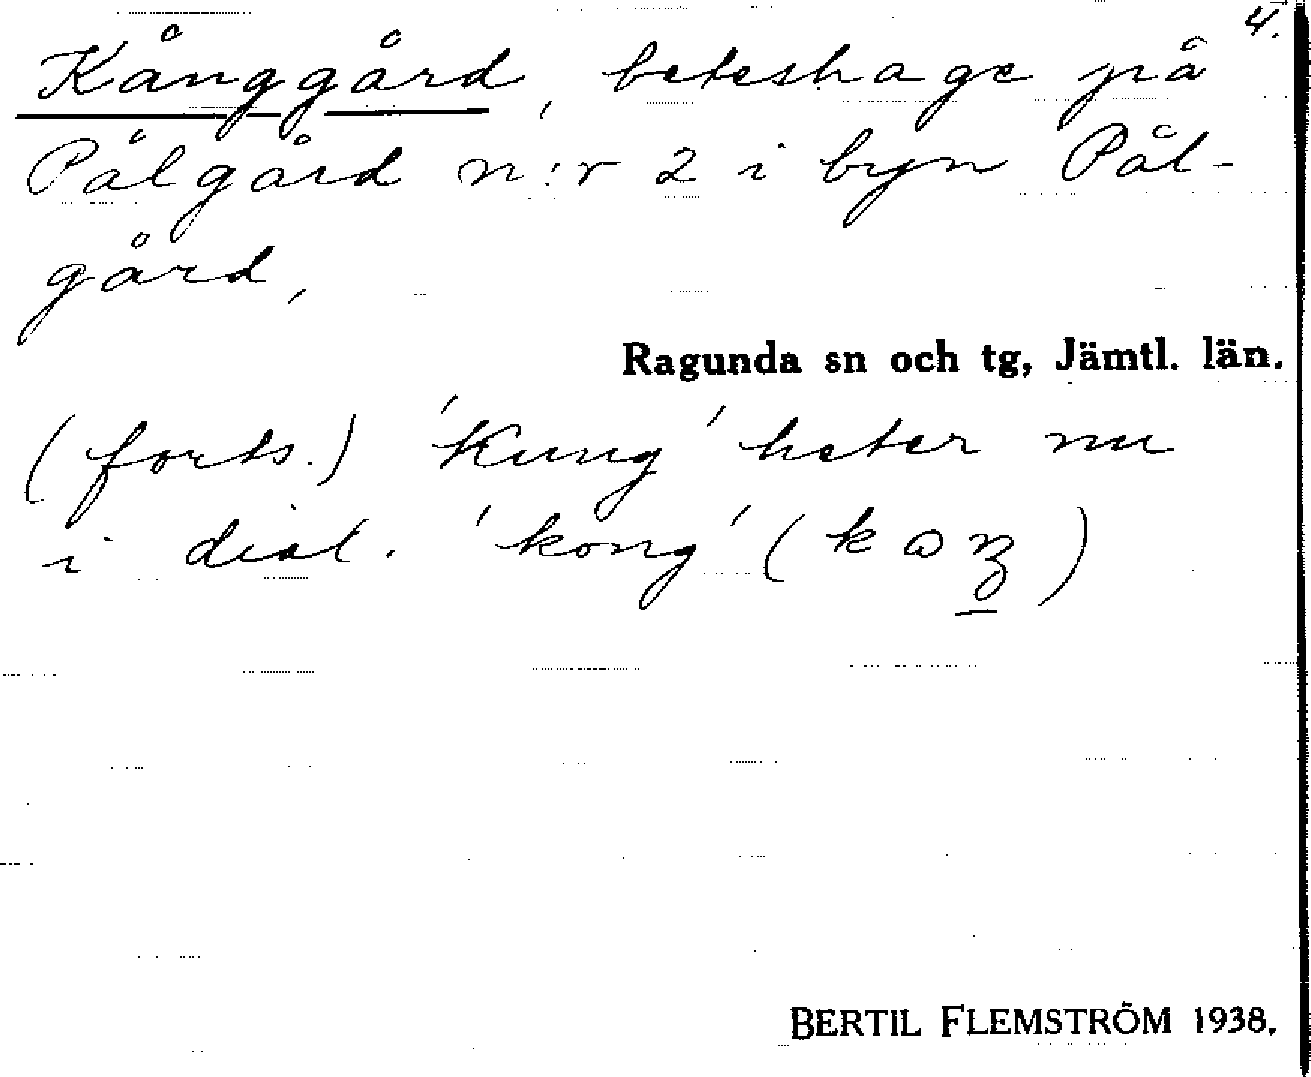 4.
Kånggård, beteshage på
Pålgård n:r 2 i byn Pål-
gård,
Ragunda sn och tg, Jämtl. län.
(forts.) 'Kung' heter nu
i dial. 'kong' (
BERTIL FLEMSTRÖM 1938.